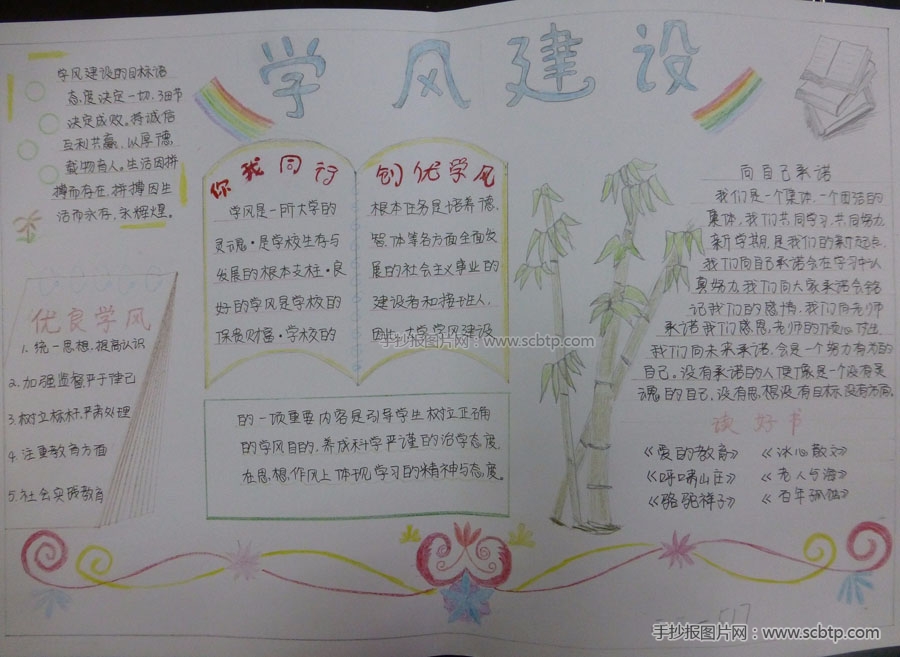 学风建设
学风建设的目标语
态度决定一切，细节
决定成败。持诚信
互利共赢，以厚德
载物育人。生活因拼
搏而存在，拼搏因生
活而永存，永辉煌。
优良学风
1.统一思想，提高认识
2.加强监督严于律己
3.树立标杆，严肃处理
4.注重教育方面
5.社会实践教育
你我同行
学风是一所大学的
灵魂·是学校生存与
发展的根本支柱·良
好的学风是学校的
保贵财富·学校的
创优学风
根本任务是培养德，
智，体等各方面全面发
展的社会主义事业的
建设者和接班人，
因此，大学学风建设
手抄报图片网：www.scbtp.com
的一项重要内容是引导学生树立正确
的学风目的，养成科学严谨的治学态度
在思想，作风上体现学习的精神与态度。
向自己承诺
我们是一个集体，一个团结的
集体，我们共同学习，共同努力
新学期，是我们的新起点，
我们向自己承诺会在学习中认
真努力，我们向大家承诺会铭
记我们的感情，我们向老师
承诺我们感恩老师的
我们向未来承诺，会是一个努力有为的
自己。没有承诺的人便像是一个没有灵
魂的自己，没有思想没有目标，没有方向。
读好书
《爱的教育》 《冰心散文》
《呼啸山庄》 《老人与海》
《骆驼祥子》 《百年孤独》
517
手抄报图片网：www.scbtp.com